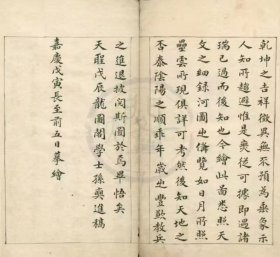 乾坤之吉祥徵異無不預為垂象示
人知所趨避惟是爽從可據即過諸
瑞已過而後知也今繪此圖悉照天
文之細錄河圖也備覽如日月所照
疊雲所現俱詳可考然後知天地之
否泰陰陽之順乖年歲之豐歉教兵
之進退披閱斯圖於焉畢悟矣
天曜戊辰龍圖閣學士孫奭進稿
嘉慶戊寅長至前五日摹繪